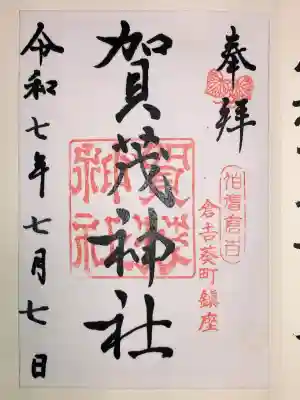 奉拝
伯耆倉吉
倉吉葵町鎮座
賀茂神社
賀茂神社
令和七年七月七日